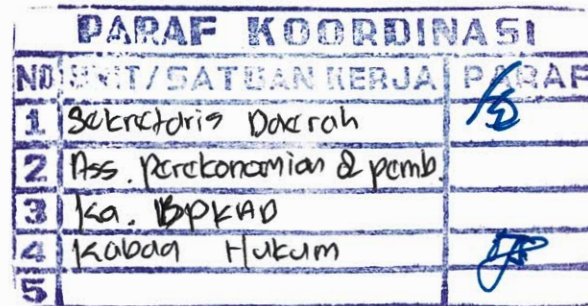 PARAF KOORDINASI
NO UNIT/SATUAN KERJA PARAF
1 Sekretaris Daerah
2 Ass. perekonomian & pemb.
3 Ka. BPKAD
4 Kabag Hukum
5